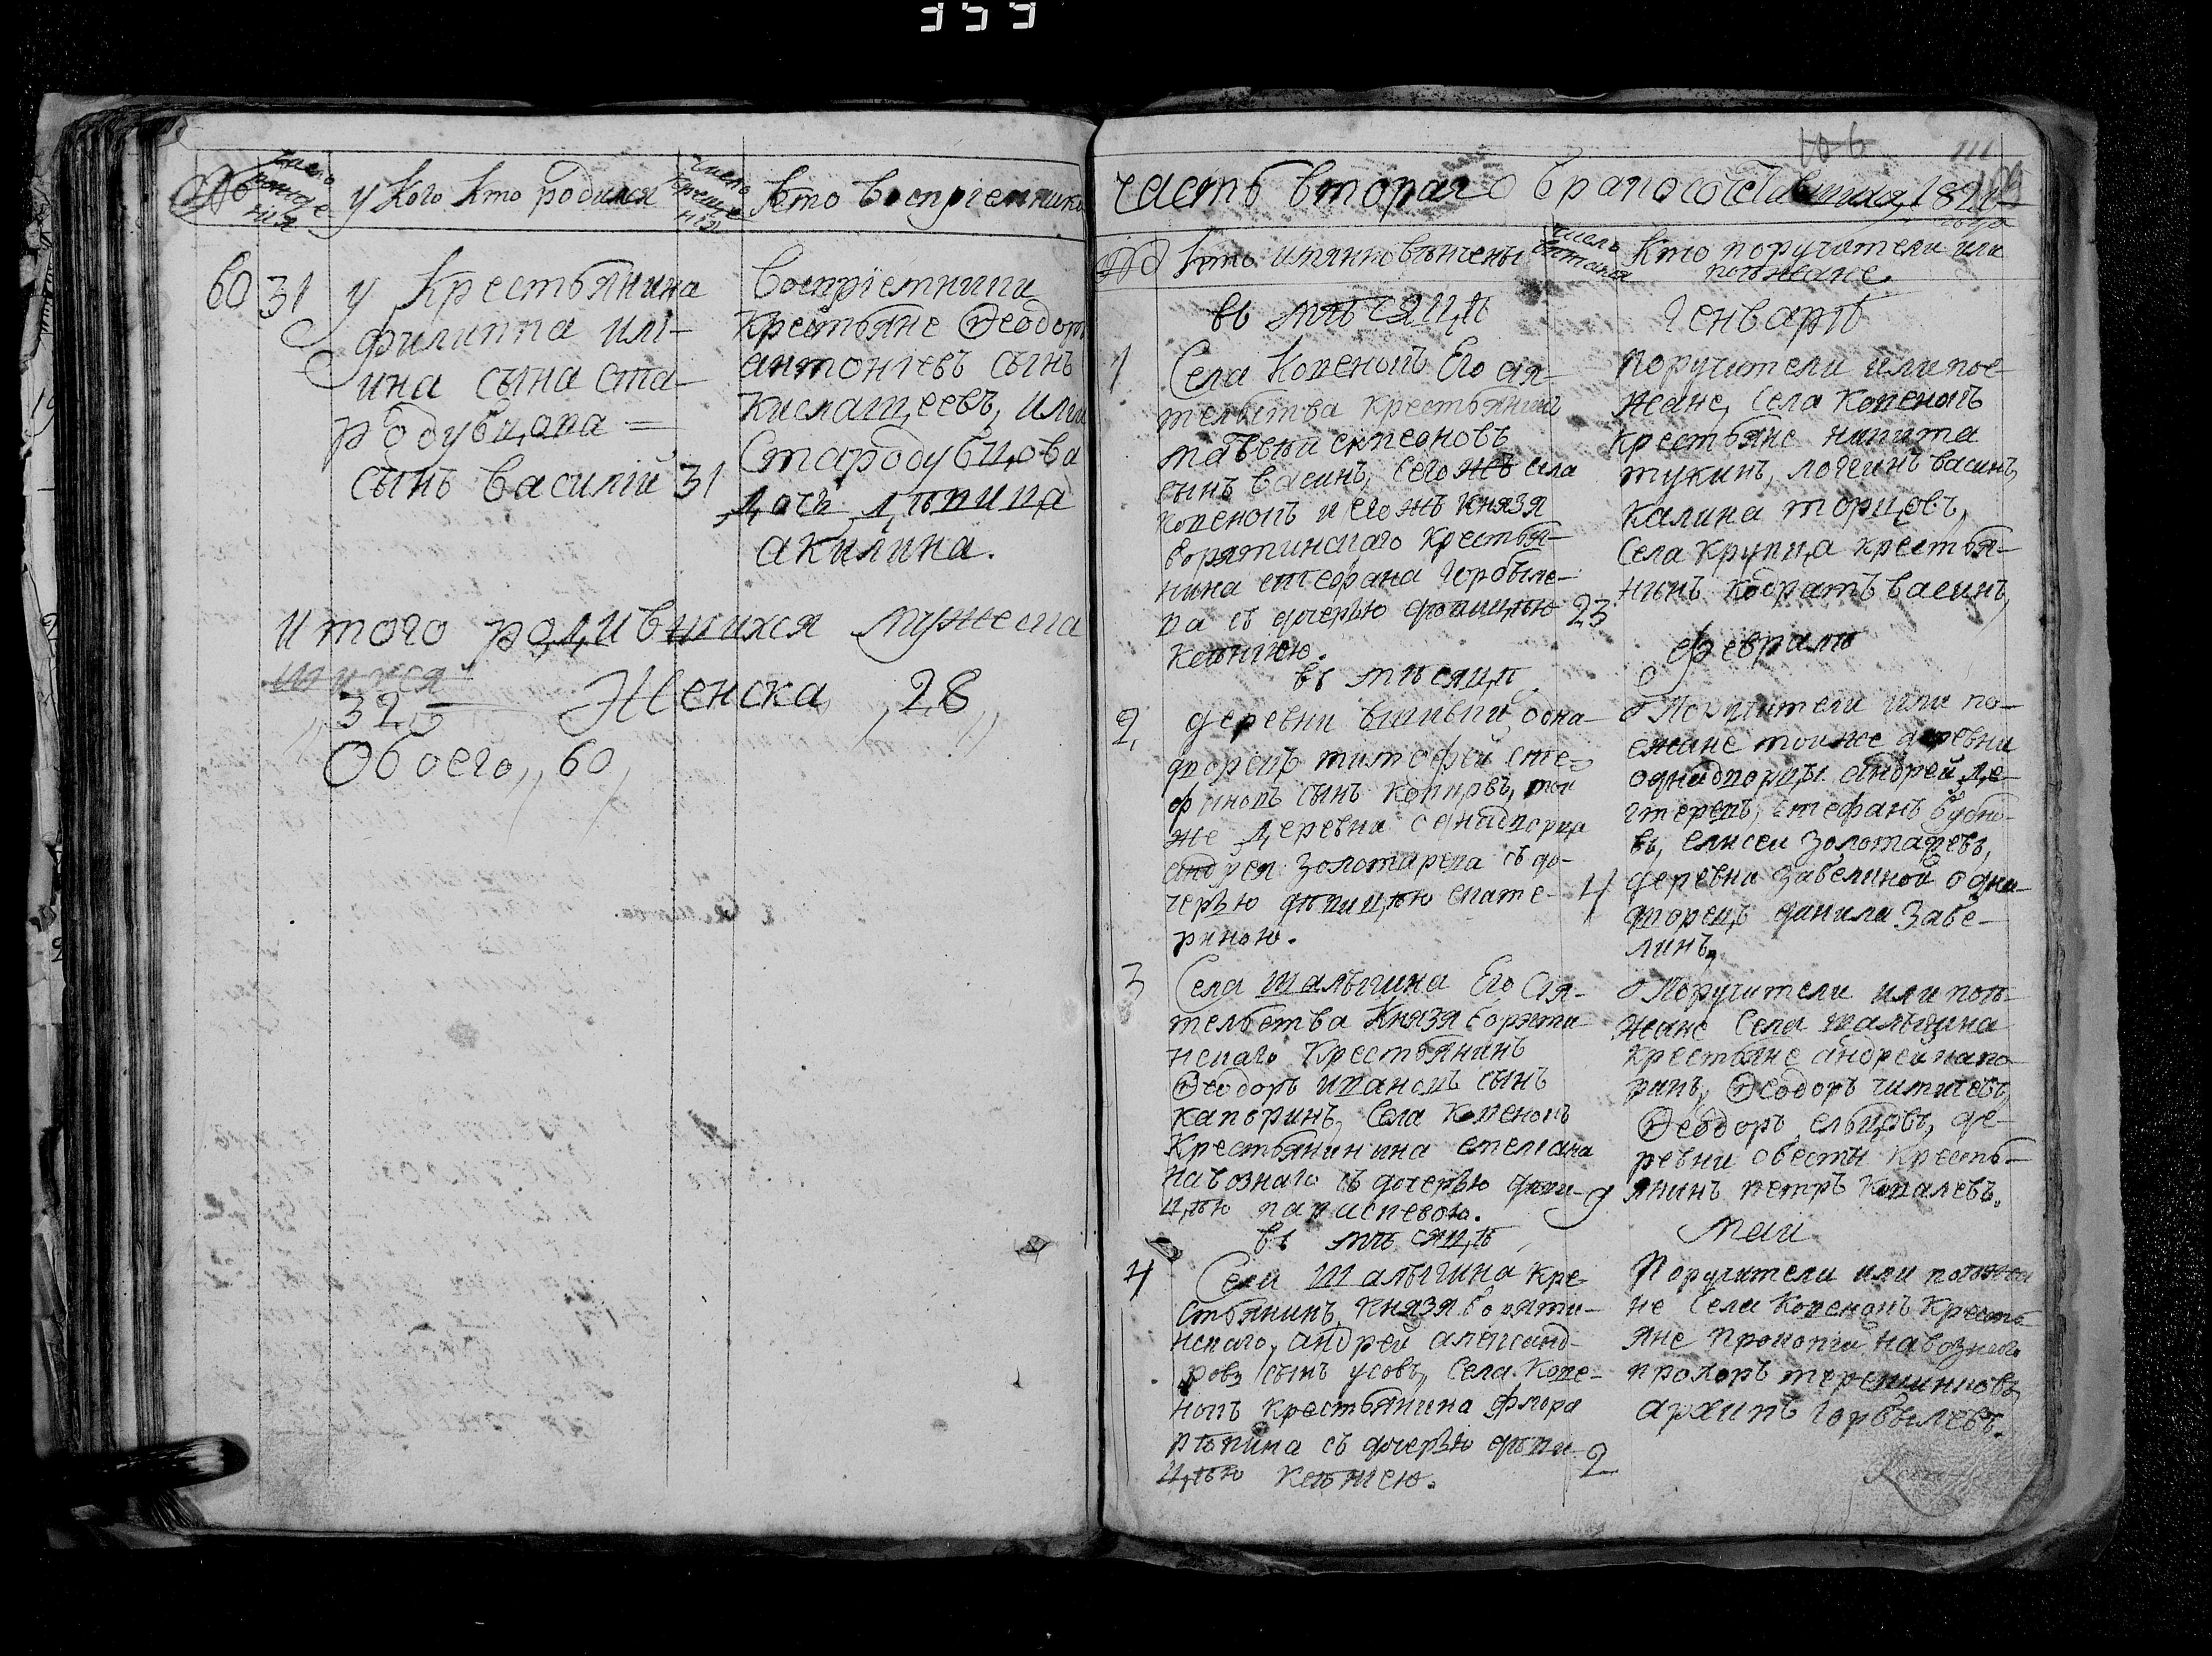 353
№
число рождения
у кого кто родился
число крещения
кто восприемники
60 31 у крестьянина
филиппа иль-
ина сына ста-
родубцова =
сынъ василій 31
восприемники
крестьяне Ѳеодотъ
антоніевъ сынъ
кислащеевъ, ильи
Стародубцова
дочь дѣвица
акилина.
итого родившихся мужеска
32
Женска 28
Обоего 60
106
111
часть вторая о бракосочетавшихся
года
№ кто имянно вѣнчены
кто поручители или
поѣзжане
въ мѣсяцѣ
Генварѣ
1 Села Копенокъ Его сия-
тельства крестьянинъ
сынъ васинъ, сего жъ села
Копенокъ и его жъ князя
борятинскаго крестья-
нина стефана Горбыле-
ва съ дочерью дѣвицею 23
ксѣніею.
поручители или пое-
жане, Села Копенокъ
крестьяне никита
тукинъ, логгинъ васинъ,
калина торцовъ,
Села крупца крестья-
нинъ кодратъ васинъ,
въ мѣсяцѣ
февралѣ
2, деревни одно-
дворецъ тимофей сте-
фановъ сынъ той
же деревни однодворца
андрея золотарева съ до-
черью дѣвицею екате- 4
риною.
Поручители или по-
езжане тоиже деревни
однодворцы андрей де-
гтеревъ, стефанъ бубно-
въ, елисеи золотаревъ,
деревни Завелиной одно-
дворецъ данила Заве-
линъ,
3 Села шалыгина Его Сия-
тельства Князя борятин-
нскаго Крестьянинъ
Ѳеодоръ ивановъ сынъ
капоринъ, Села Копенокъ
Крестьянинина
навознаго съ дочерью дѣви- 9
цею параскевою.
Поручители или поѣ-
жане Села шалыгина
крестьяне андреи капо-
ринъ, Ѳеодоръ
Ѳеодоръ ельцовъ, де-
ревни обесты кресть-
янинъ петръ ковалевъ.
въ мѣсяцѣ
маи
4 Села шалыгина кре-
стьянинъ князя боряти-
нскаго, андрей александ-
ровъ сынъ усовъ, Села Копе-
нокъ крестьянина флора
рѣпина съ дочерью дѣви- 2
цею ксѣніею.
Поручители или поѣзжа
не Села Копенокъ кресть
яне прокопій навозного
прохоръ терешинковъ,
архипъ горбылевъ.